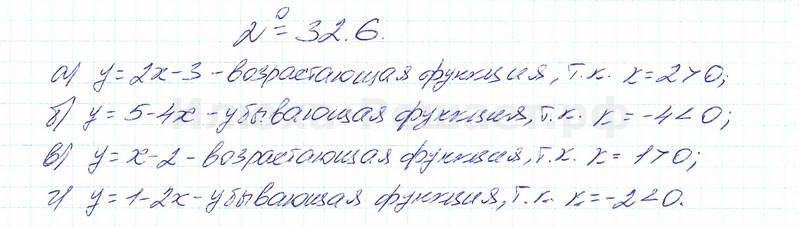 № 32.6.
а) y = 2x-3 - возрастающая функция, т.к. k = 2 > 0;
б) y = 5-4x - убывающая функция, т.к. k = -4 < 0;
в) y = x-2 - возрастающая функция, т.к. k = 1 > 0;
г) y = 1-2x - убывающая функция, т.к. k = -2 < 0.